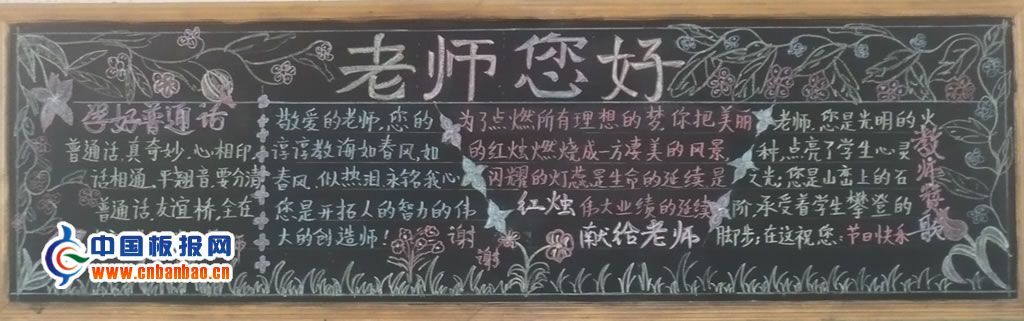 老师您好
学好普通话
普通话,真奇妙,心相印,
话相通,平翘音,要分清
普通话,友谊桥,全在
敬爱的老师,您的
谆谆教诲如春风,如
春风,似热泪永铭我心
您是开拓人的智力的伟
大的创造师!
谢
谢
为了点燃所有理想的梦,你把美丽
的红烛燃烧成一方凄美的风景,
闪耀的灯蕊是生命的延续是
红烛 伟大业绩的延续
献给老师
老师,您是光明的火
种,点亮了学生心灵
之光;您是山峦上的石
阶,承受着学生攀登的
脚步;在这祝您:节日快乐
教师赞歌
中国板报网
www.cnbanbao.cn